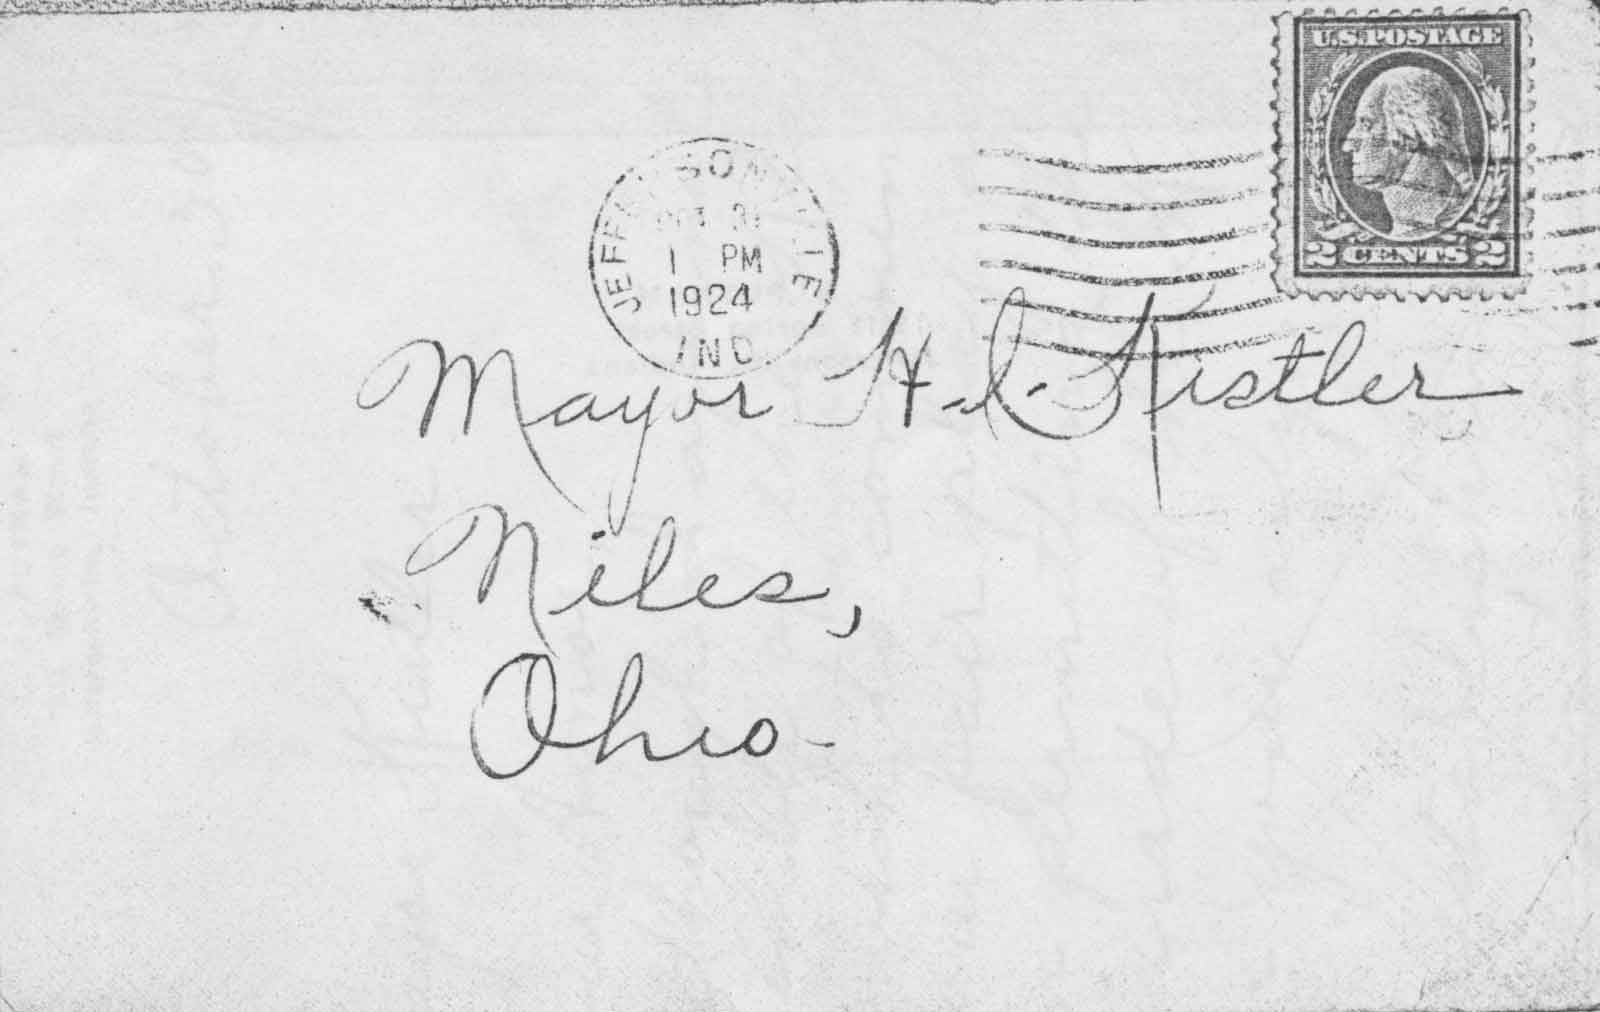 U.S. POSTAGE
2 CENTS 2
JEFFERSONVILLE
OCT 31
1 PM
1924
IND.
Mayor H. C. Kistler
Niles,
Ohio